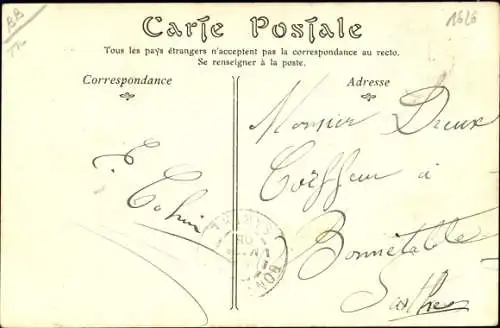 BB
1616
Carte Postale
Tous les pays étrangers n'acceptent pas la correspondance au recto.
Se renseigner à la poste.
Correspondance
Adresse
Monsieur Dreux
Coiffeur à
Bonnétable
Sarthe
E. Cohin
BON